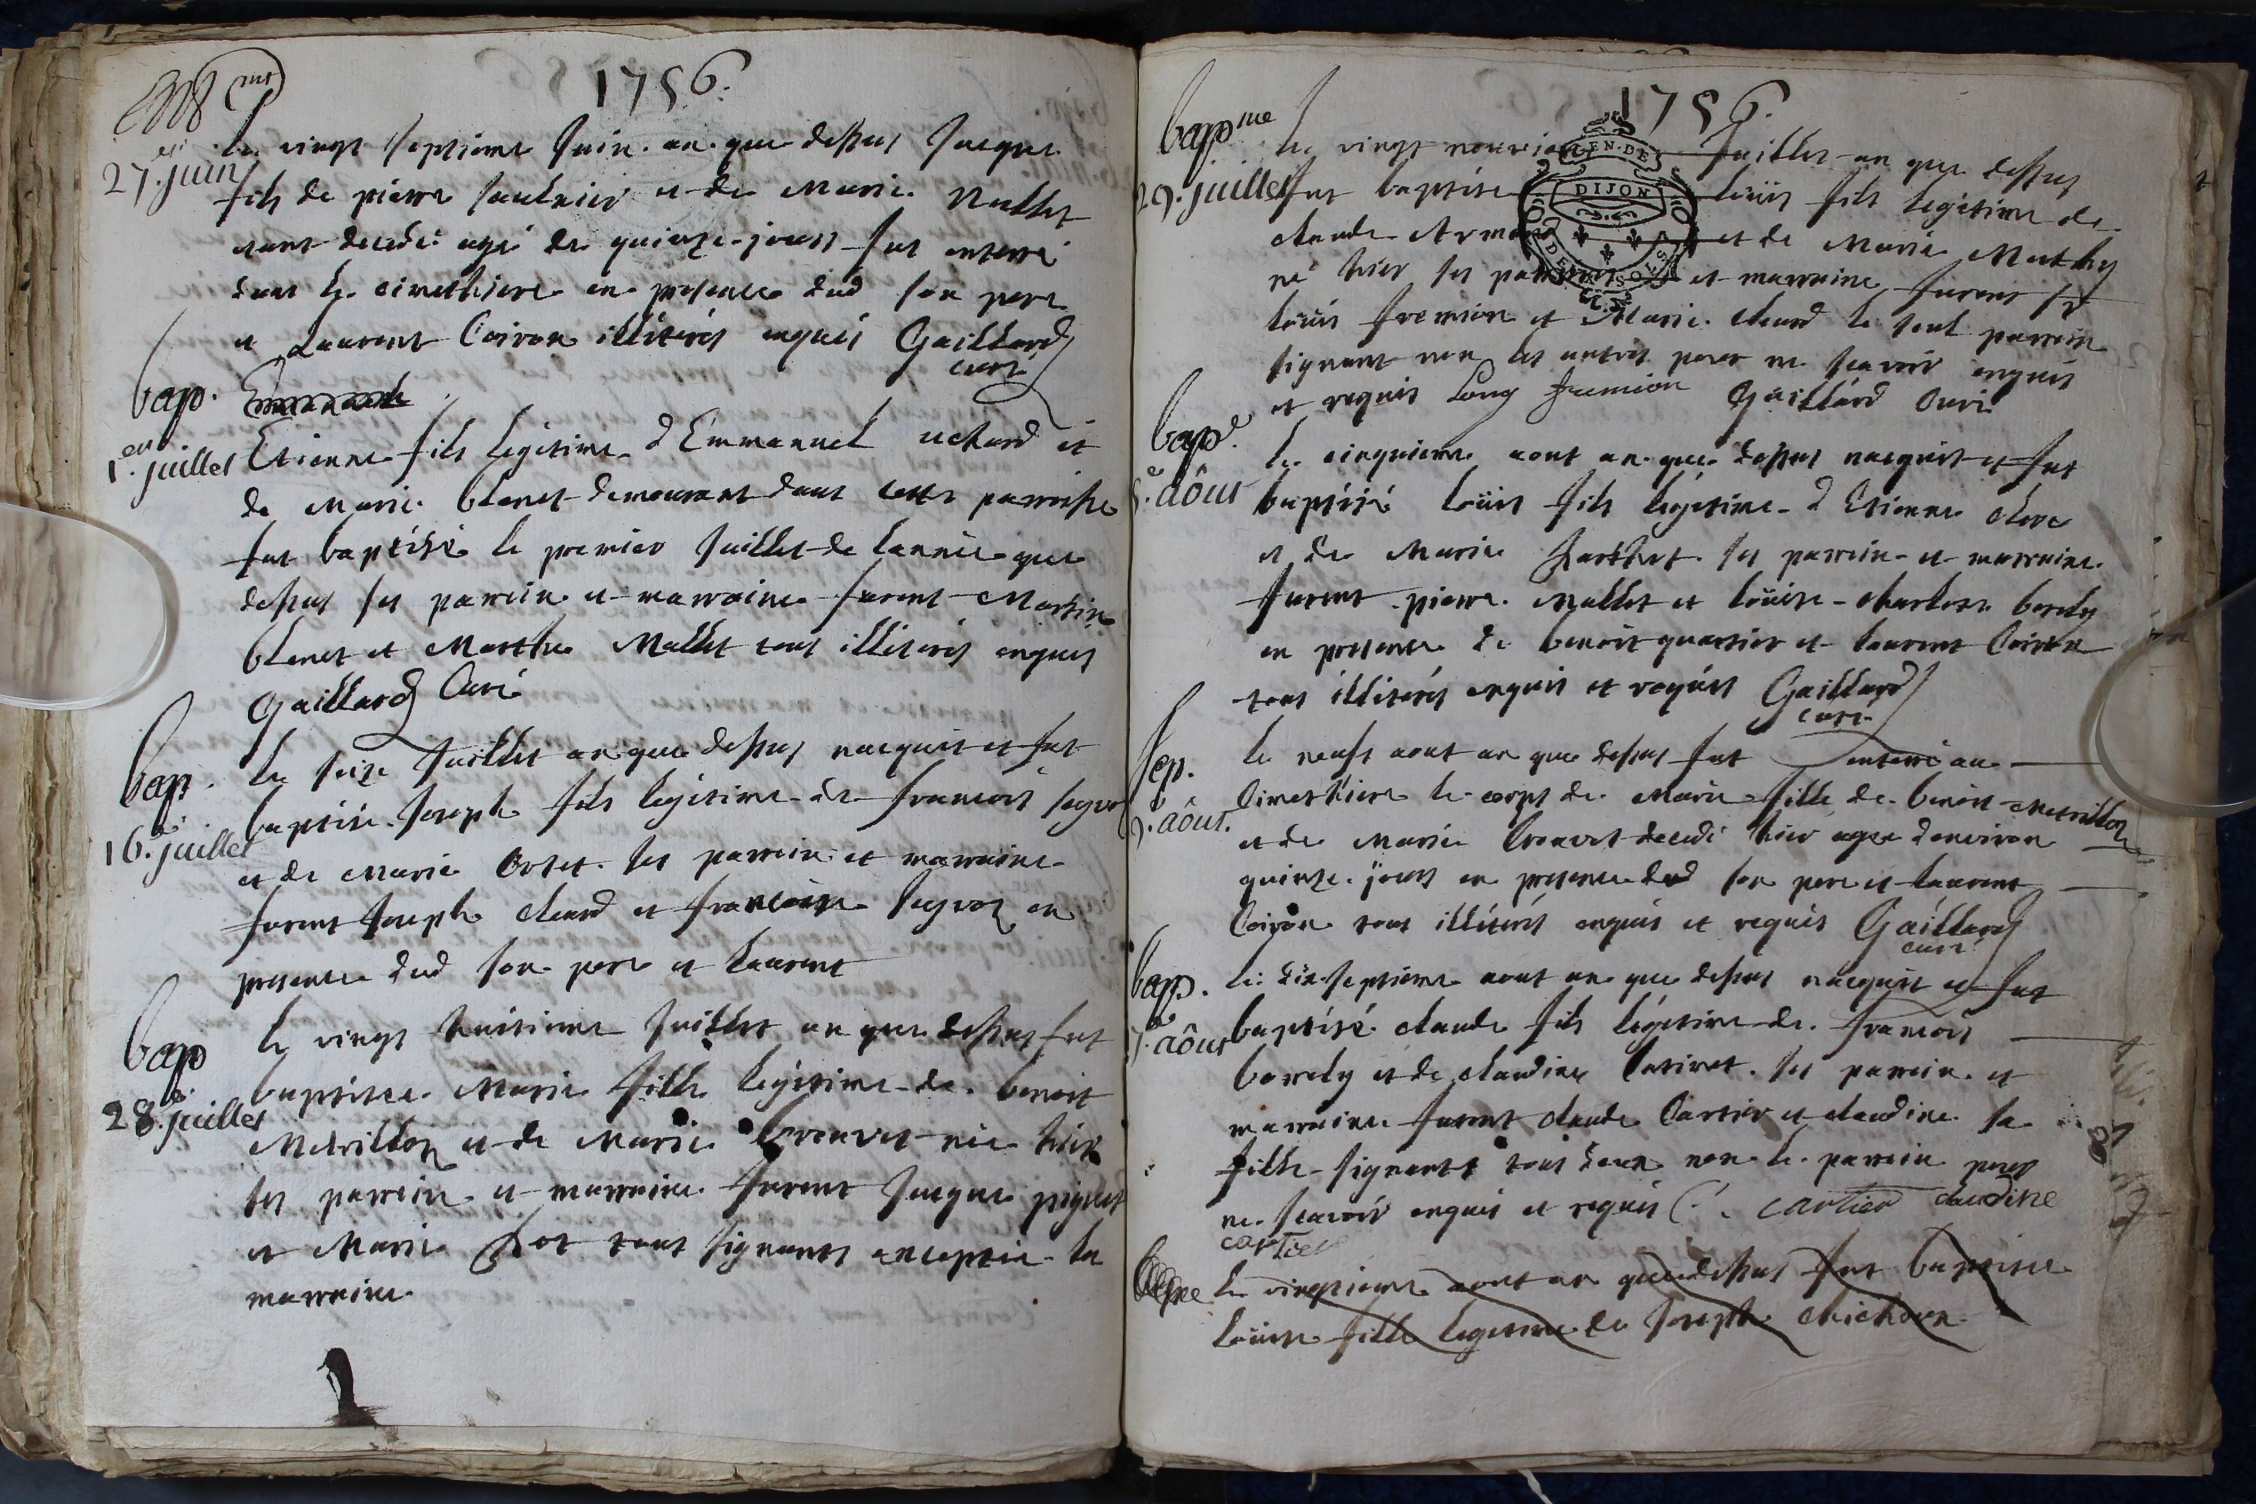 1756.
27.e juin
Le vingt septieme Juin an que dessus Jacque
fils de pierre saulnier et de Marie Mallet
etant decedé agé de quinze jours fut enterré
dans le cimethiere en presence dud son pere
et Laurent Coiron illiterés enquis Gaillard
curé
bap.
1.er juillet
Etienne fils legitime d'Emmanuel uchard et
de Marie blanet demeurant dans cette parroisse
fut baptisé le premier Juillet de lannée que
dessus ses parrein et marraine furent Martin
blanet et Marthe Mallet tous illiterés enquis
Gaillard Curé
bap.
16.e juillet
Le seize Juillet an que dessus nacquit et fut
baptisé Joseph fils legitime de francois
et de Marie ses parrein et marraine
furent Joseph cheard et francoise en
presence dud son pere et Laurent
bap
28.e juillet
Le vingt huitieme Juillet an que dessus fut
baptisee Marie fille legitime de benoit
Metrillon et de Marie brouvet née hier
ses parrein et marraine furent Jacque piquet
et Marie tous signants exceptée la
marraine
1756.
bapme
29. juillet
Le vingt neuvieme Juillet an que dessus
fut baptisé Loüis fils legitime de
claude et de Marie Mathy
né hier ses parrein et marraine furent sr
Loüis fremion et Marie cheard le seul parrein
signant non les autres pour ne scavoir enquis
et requis Louy fremion Gaillard Curé
bap.e
5.e aôut
Le cinquieme aout an que dessus nacquit et fut
baptisé Loüis fils legitime d'Etienne
et de Marie ses parrein et marraine
furent pierre Mallet et Loüise charlotte borely
en presence de benoit quartier et Laurent Coiron
tous illiterés enquis et requis Gaillard
curé
sep.
9.e aôut.
Le neuf aout an que dessus fut enterré au
Cimethiere le corps de Marie fille de benoit Metrillon
et de Marie brouvet decedé hier agée denviron
quinze jours en presence dud son pere et Laurent
Coiron tous illiterés enquis et requis Gaillard
curé
bap.
aôut
Le dix septieme aout an que dessus nacquit et fut
baptisé claude fils legitime de francois
borely et de claudine ses parrein et
marraine furent claude Cartier et claudine sa
fille signants tous deux non le parrein pour
ne scavoir enquis et requis C. cartier claudine
cartier
Le vingtieme aout an que dessus fut baptisee
Loüise fille legitime de Joseph Michoux
DIJON